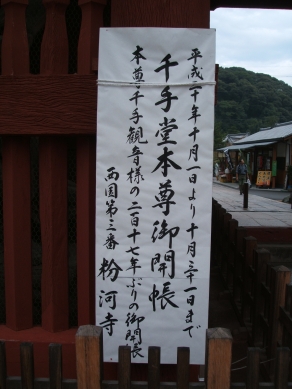 平成二十年十月一日より十月三十一日まで
千手堂本尊御開帳
本尊千手観音様の二百十七年ぶりの御開帳
西国第三番 粉河寺